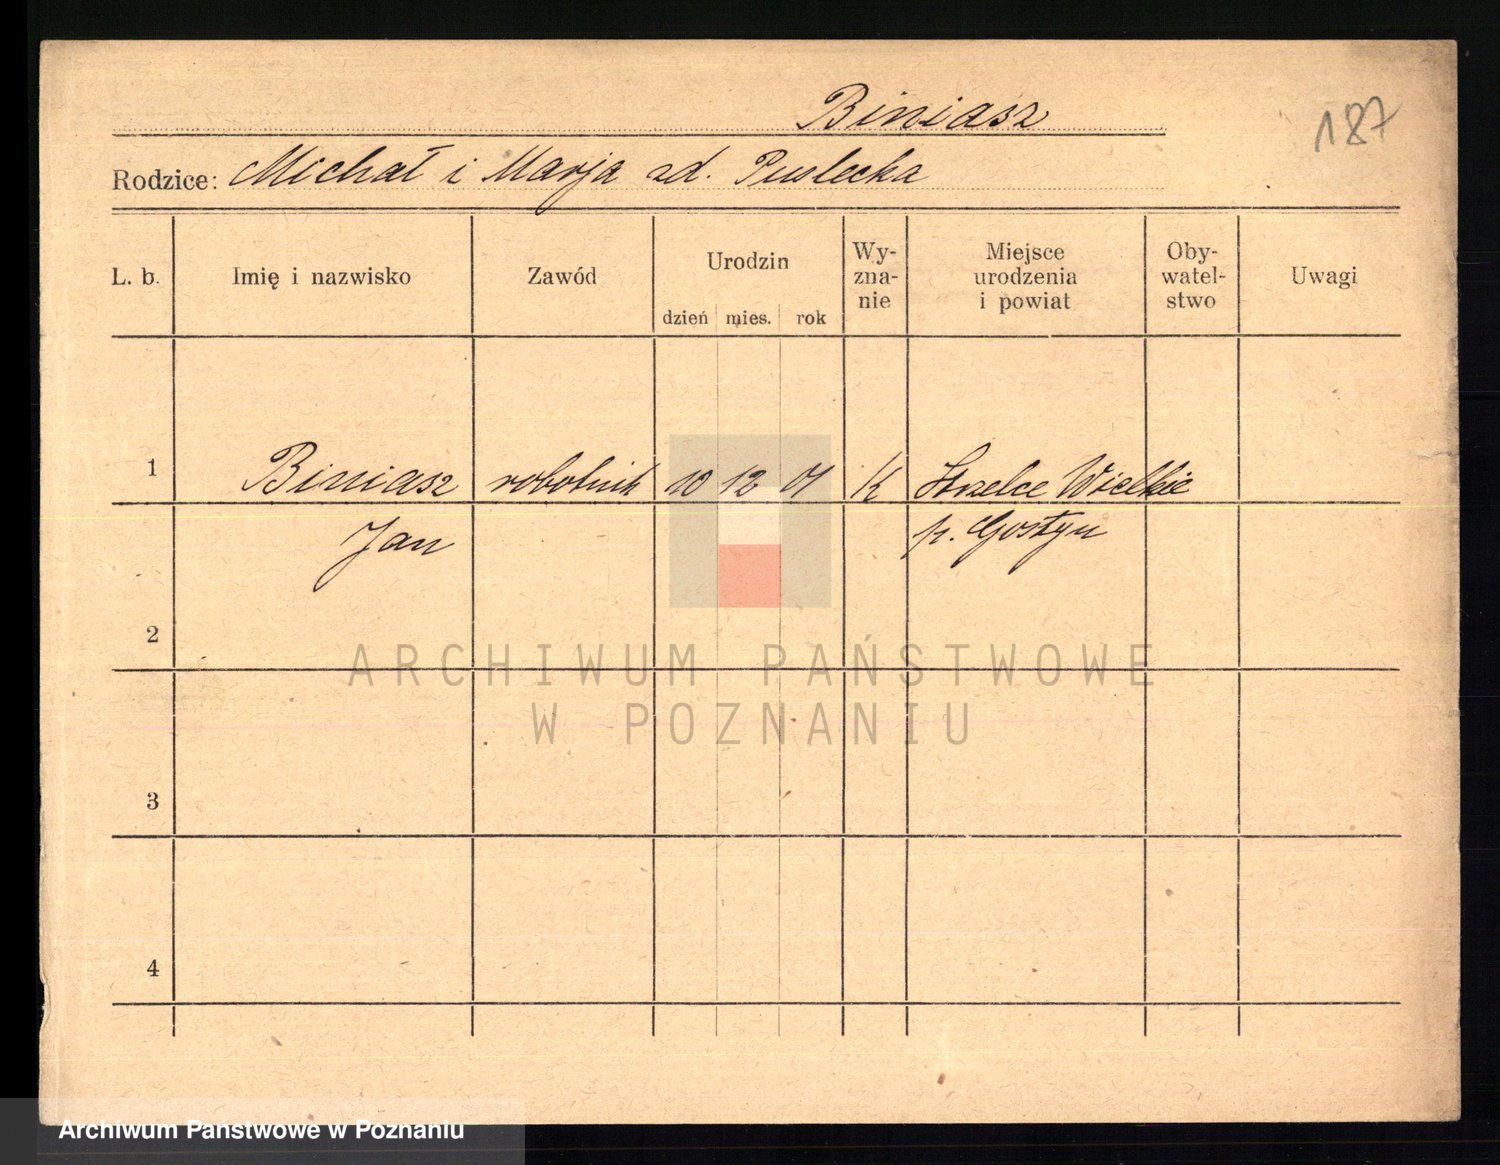 Biniasz
187
Rodzice: Michał i Marja zd.
L. b. Imię i nazwisko Zawód Urodzin Wy-zna-nie Miejsce urodzenia i powiat Oby-watel-stwo Uwagi
dzień mies. rok
1 Biniasz robotnik 10 12 01 K Strzelce Wielkie
Jan p. Gostyn
2
ARCHIWUM PAŃSTWOWE
W POZNANIU
3
4
Archiwum Państwowe w Poznaniu